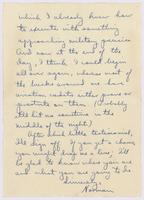 which I already know how
to operate with something
approaching military precision
And now at the end of the
day, I think I could begin
all over again, whereas most of
the bucks around me have
aviation cadets either prone or
prostrate on them. (Probably
I'll hit no sometime in the
middle of the night.)
After which little testimonial,
I'll sign off. If you get a chance
you might drop us a line. I'll
be glad to know where you are
and what you are going to do
Sincerely,
Norman